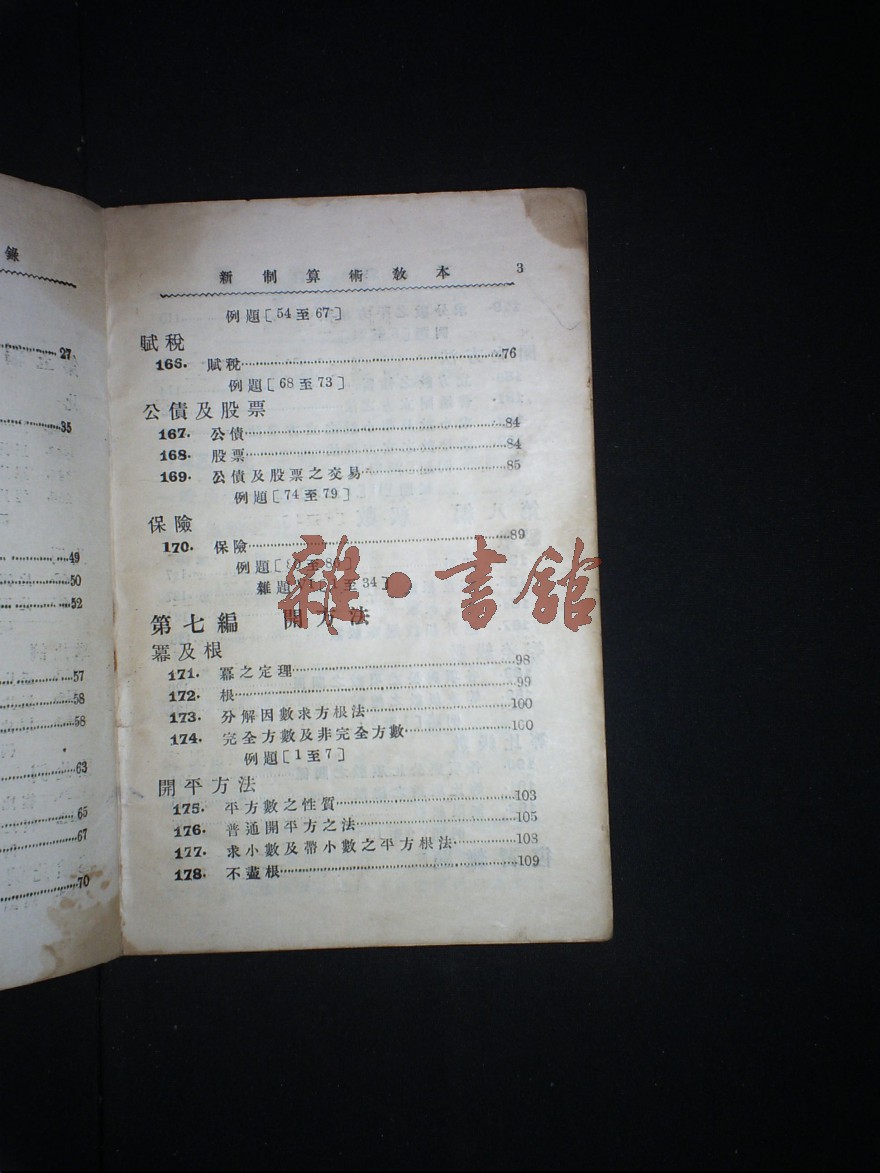 錄
27
35
49
50
52
57
58
58
63
65
67
70
新制算術教本 3
例題[54至67]
賦稅
166. 賦稅 76
例題[68至73]
公債及股票
167. 公債 84
168. 股票 84
169. 公債及股票之交易 85
例題[74至79]
保險
170. 保險 89
例題[ 至 ]
雜題 至34]
雜·書館
第七編 開方法
冪及根
171. 冪之定理 98
172. 根 99
173. 分解因數求方根法 100
174. 完全方數及非完全方數 100
例題[1至7]
開平方法
175. 平方數之性質 103
176. 普通開平方之法 105
177. 求小數及帶小數之平方根法 108
178. 不盡根 109